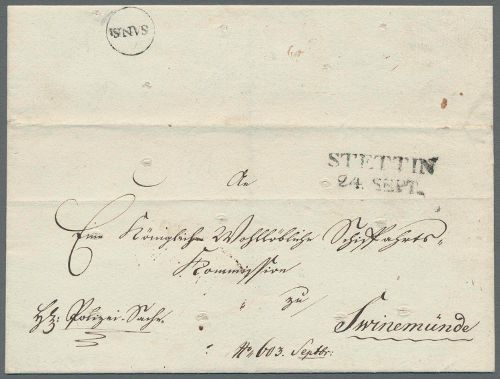 SANS:
STETTIN
24 SEPT.
An
Eine Königliche Wohllöbliche Schiffahrts-
Kommission
zu
Polizei-Sache.
Swinemünde
No. 603. Septbr: